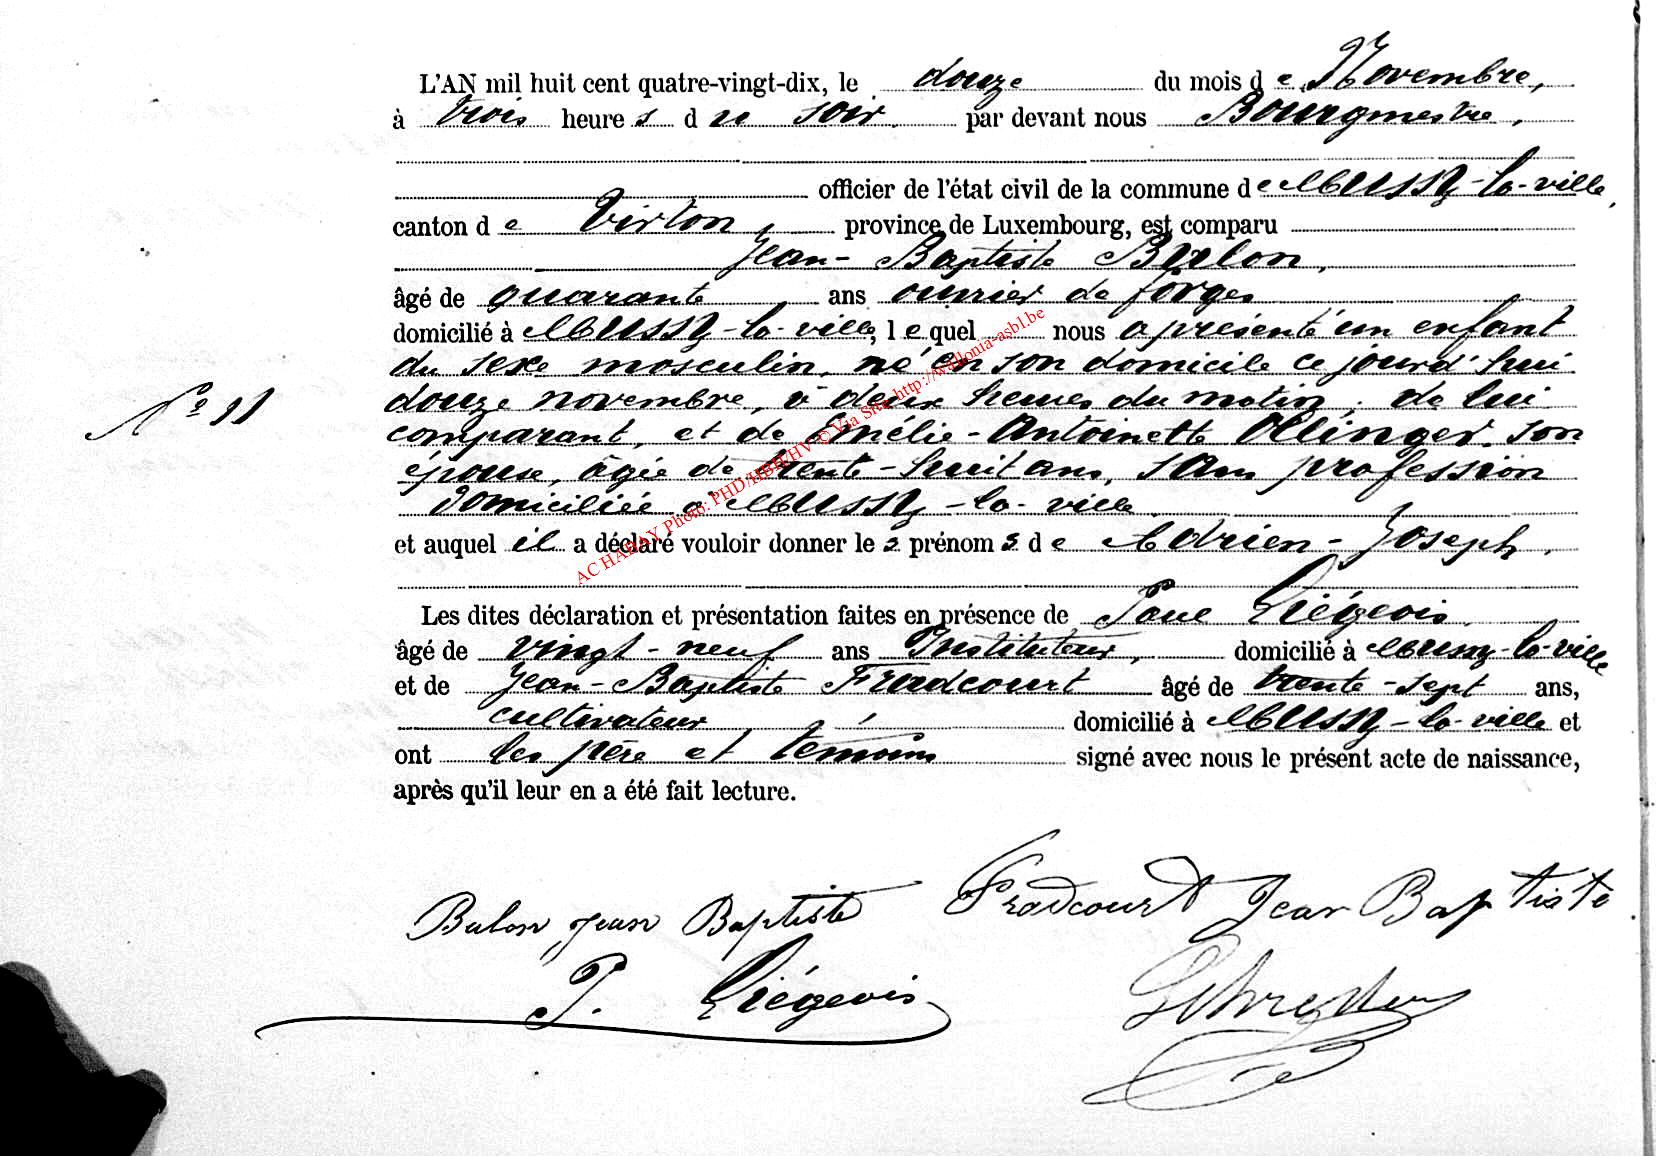 L'AN mil huit cent quatre-vingt-dix, le douze du mois de Novembre,
à trois heures du soir par devant nous Bourgmestre,
officier de l'état civil de la commune de Mussy-la-ville,
canton de Virton, province de Luxembourg, est comparu
Jean-Baptiste Bulon,
âgé de quarante ans ouvrier de forges
domicilié à Mussy-la-ville, lequel nous a présenté un enfant
du sexe masculin, né en son domicile ce jourd'hui
N° 11
douze novembre, à deux heures du matin, de lui
comparant, et de Emélie-Antoinette Ollinger, son
épouse, âgée de trente-huit ans, sans profession
domiciliée à Mussy-la-ville.
et auquel il a déclaré vouloir donner les prénoms de Adrien-Joseph.
Les dites déclaration et présentation faites en présence de Paul Liégeois,
âgé de vingt-neuf ans Instituteur, domicilié à Mussy-la-ville
et de Jean-Baptiste Fradcourt âgé de trente-sept ans,
cultivateur domicilié à Mussy-la-ville et
ont les père et témoins signé avec nous le présent acte de naissance,
après qu'il leur en a été fait lecture.
Bulon Jean Baptiste Fradcourt Jean Baptiste
P. Liégeois
AC HABAY Photo: PHD/HBH/HV © Via Site http://wallonia-asbl.be